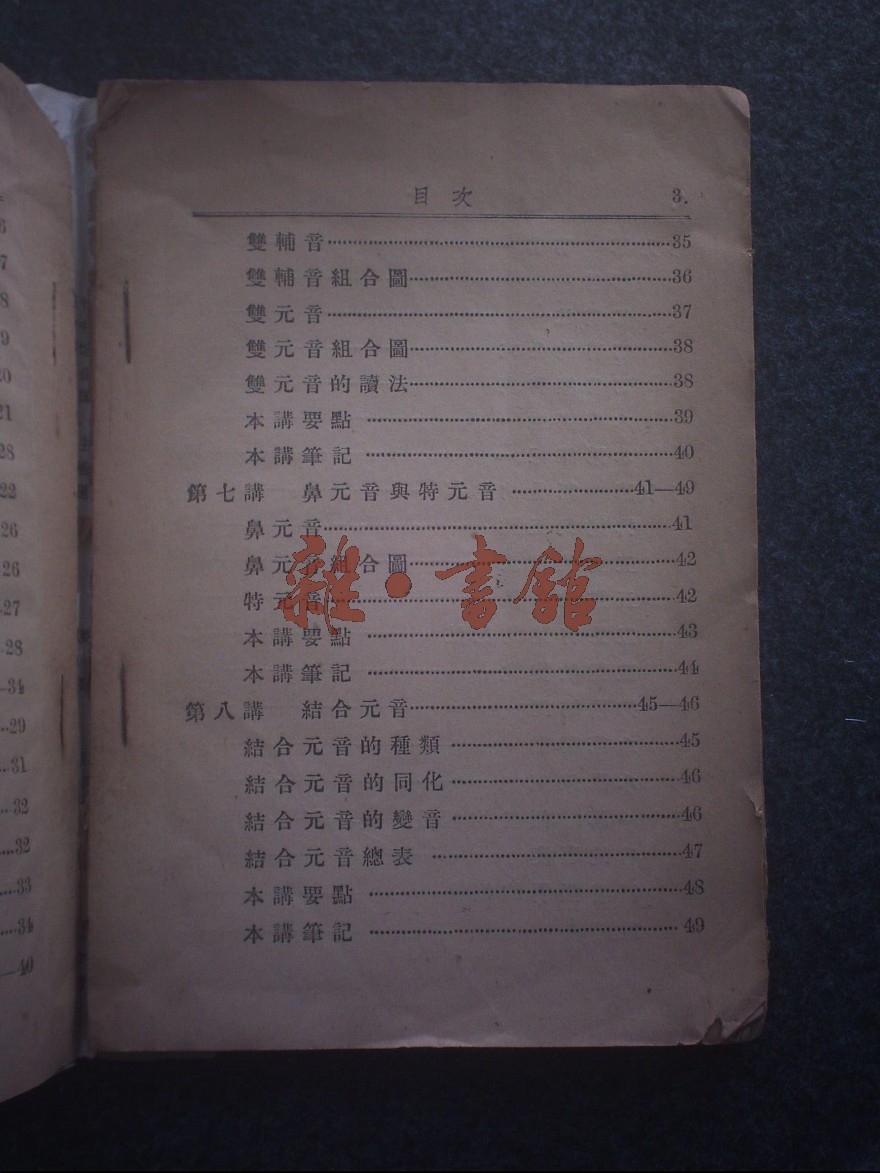 目次 3.
雙輔音 35
雙輔音組合圖 36
雙元音 37
雙元音組合圖 38
雙元音的讀法 38
本講要點 39
本講筆記 40
第七講 鼻元音與特元音 41—49
鼻元音 41
鼻元音組合圖 42
特元音 42
本講要點 43
本講筆記 44
第八講 結合元音 45—46
結合元音的種類 45
結合元音的同化 46
結合元音的變音 46
結合元音總表 47
本講要點 48
本講筆記 49
雜·書館
6
7
8
9
20
21
28
22
26
26
27
28
34
29
31
32
32
33
34
40